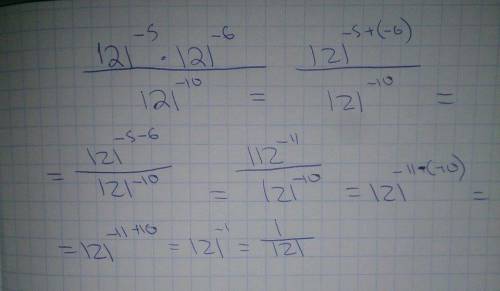 (121^-5 · 121^-6) / 121^-10 = 121^-5+(-6) / 121^-10 =
= 121^-5-6 / 121^-10 = 112^-11 / 121^-10 = 121^-11-(-10) =
= 121^-11+10 = 121^-1 = 1/121